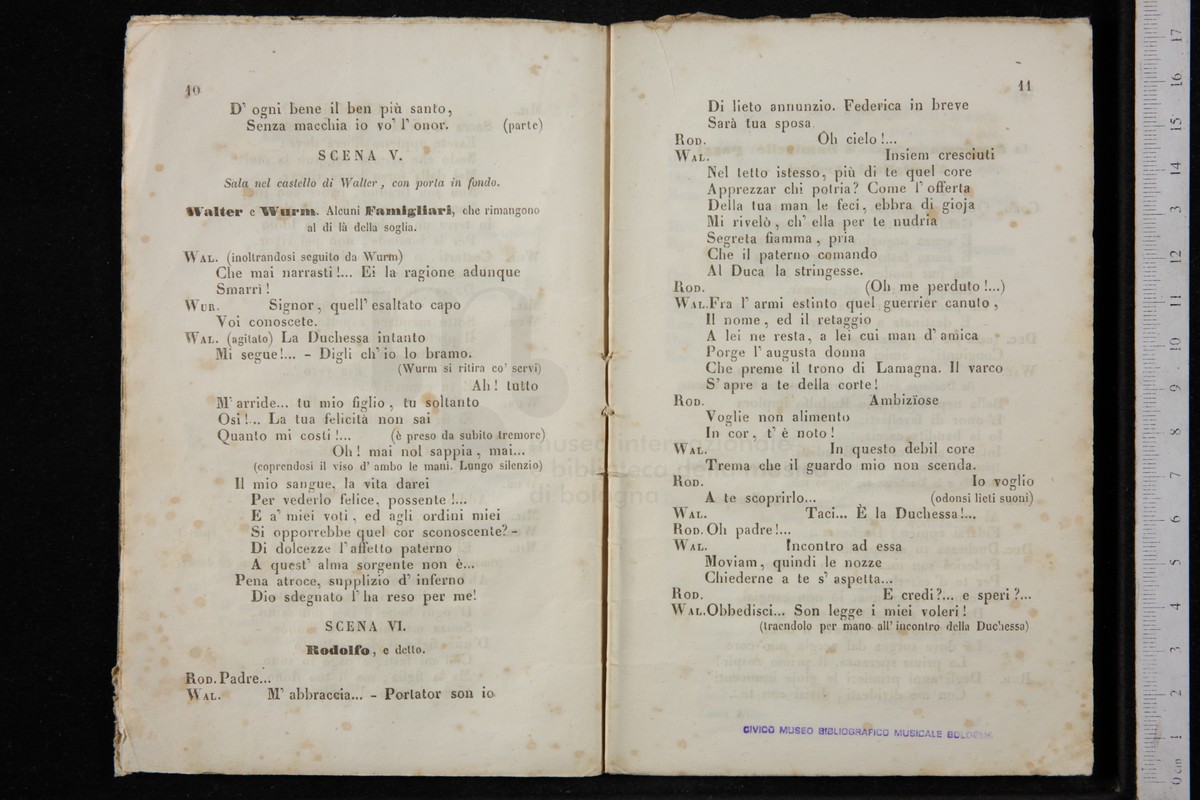 10
D' ogni bene il ben più santo,
Senza macchia io vo' l' onor. (parte)
SCENA V.
Sala nel castello di Walter, con porta in fondo.
Walter e Wurm. Alcuni Famigliari, che rimangono
al di là della soglia.
WAL. (inoltrandosi seguito da Wurm)
Che mai narrasti!... Ei la ragione adunque
Smarrì!
WUR. Signor, quell' esaltato capo
Voi conoscete.
WAL. (agitato) La Duchessa intanto
Mi segue!... – Digli ch' io lo bramo.
(Wurm si ritira co' servi)
Ah! tutto
M' arride... tu mio figlio, tu soltanto
Osi!... La tua felicità non sai
Quanto mi costi!... (è preso da subito tremore)
Oh! mai nol sappia, mai...
(coprendosi il viso d' ambo le mani. Lungo silenzio)
Il mio sangue, la vita darei
Per vederlo felice, possente!...
E a' miei voti, ed agli ordini miei
Si opporrebbe quel cor sconoscente? –
Di dolcezze l' affetto paterno
A quest' alma sorgente non è...
Pena atroce, supplizio d' inferno
Dio sdegnato l' ha reso per me!
SCENA VI.
Rodolfo, e detto.
ROD. Padre...
WAL. M' abbraccia... – Portator son io
11
Di lieto annunzio. Federica in breve
Sarà tua sposa.
ROD. Oh cielo!...
WAL. Insiem cresciuti
Nel tetto istesso, più di te quel core
Apprezzar chi potria? Come l' offerta
Della tua man le feci, ebbra di gioja
Mi rivelò, ch' ella per te nudria
Segreta fiamma, pria
Che il paterno comando
Al Duca la stringesse.
ROD. (Oh me perduto!...)
WAL. Fra l' armi estinto quel guerrier canuto,
Il nome, ed il retaggio
A lei ne resta, a lei cui man d' amica
Porge l' augusta donna
Che preme il trono di Lamagna. Il varco
S' apre a te della corte!
ROD. Ambizïose
Voglie non alimento
In cor, t' è noto!
WAL. In questo debil core
Trema che il guardo mio non scenda.
ROD. Io voglio
A te scoprirlo... (odonsi lieti suoni)
WAL. Taci... È la Duchessa!...
ROD. Oh padre!...
WAL. Incontro ad essa
Moviam, quindi le nozze
Chiederne a te s' aspetta...
ROD. E credi?... e speri?...
WAL. Obbedisci... Son legge i miei voleri!
(traendolo per mano all' incontro della Duchessa)
CIVICO MUSEO BIBLIOGRAFICO MUSICALE BOLOGNA
museo internazionale
e biblioteca della musica
di bologna
0 cm 1 2 3 4 5 6 7 8 9 10 11 12 13 14 15 16 17